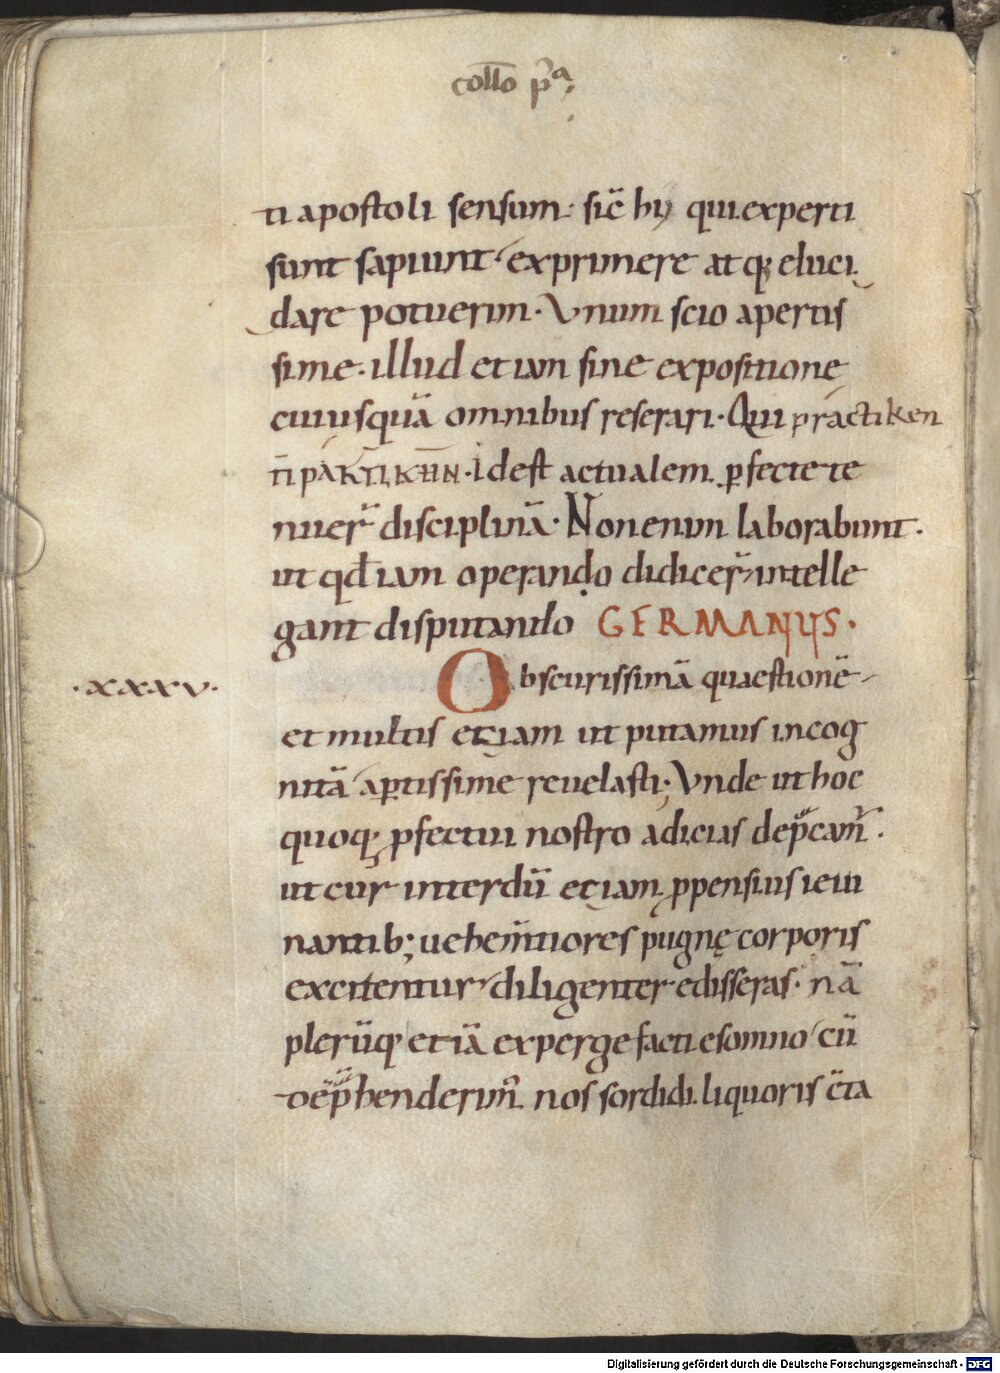 coll̅o pͣ.
ti apostoli sensum· sic̄ hij qui experti
sunt sapiunt exprimere atq; eluci
dare potuerim· Vnum scio apertis
sime· illud etiam sine expositione
cuiusquā omnibus reserari· Qui practiken
ΠΡΑΚΤΙΚΗΝ· idest actualem ꝑfecte te
nuer̄ disciplinā· Non enim laborabunt·
ut qđ iam operando didicer̄ intelle
gant disputando GERMANUS·
·xxxv·
Obscurissimā quaestionē
et multis etiam ut putamus incog
nitā aꝑtissime reuelasti; Vnde ut hoc
quoq; ꝓfectui nostro adicias dep̄cam̄·
ut cur interdū etiam ꝓpensius ieiu
nantib; uehem̄tiores pugnę corporis
excitentur diligenter edisseras· nā
plerūq; etiā expergefacti e somno cū
dep̄henderim̄ nos sordidi liquoris c̄ta
Digitalisierung gefördert durch die Deutsche Forschungsgemeinschaft - DFG